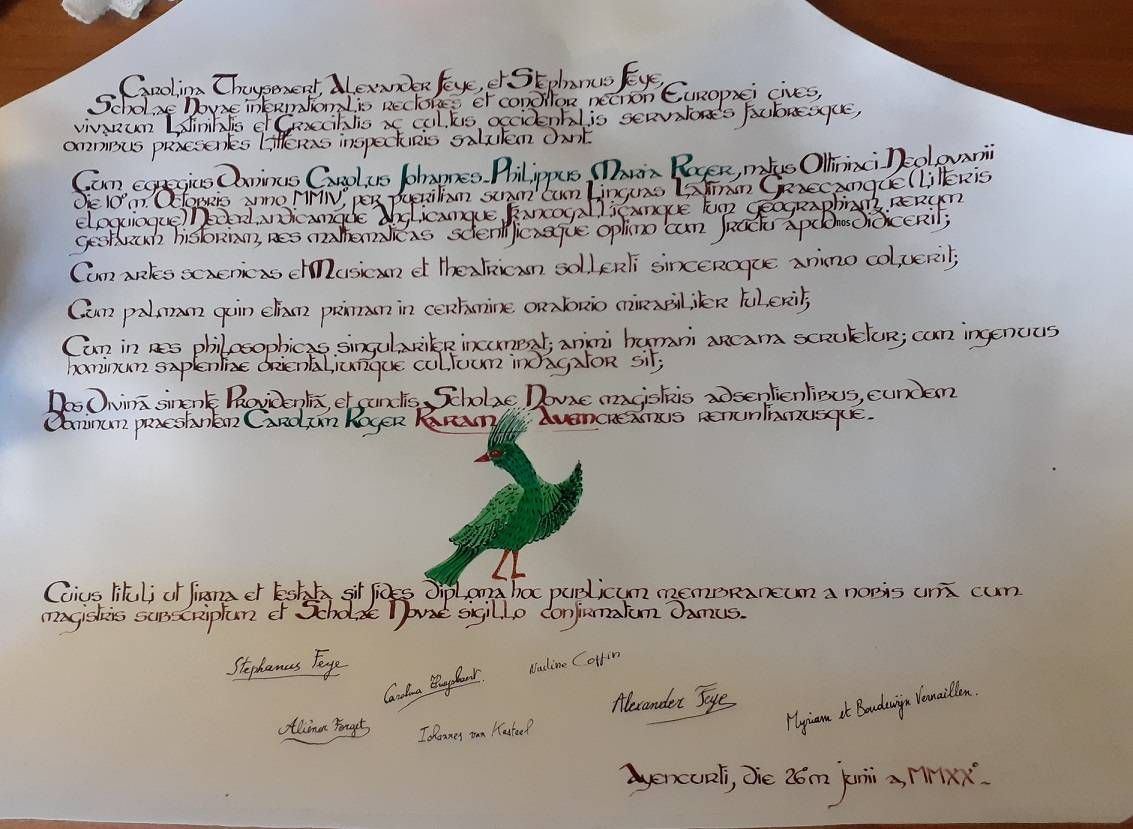 Carolina Thuysbaert, Alexander Feye, et Stephanus Feye,
Scholae Novae internationalis rectores et conditor necnon Europaei cives,
vivarum Latinitatis et Graecitatis ac cultus occidentalis servatores fautoresque,
omnibus praesentes litteras inspecturis salutem dant.
Cum egregius Dominus Carolus Johannes-Philippus Maria Roger, natus Ottiniaci-Neolovanii
die 10° m. Octobris anno MMIV°, per pueritiam suam cum Linguas Latinam Graecamque (litteris
eloquioque) Nederlandicamque Anglicamque Francogallicamque tum geographiam, rerum
gestarum historiam, res mathematicas scientificasque optimo cum fructu apud nos didicerit;
Cum artes scaenicas et Musicam et theatricam sollerti sinceroque animo coluerit;
Cum palmam quin etiam primam in certamine oratorio mirabiliter tulerit;
Cum in res philosophicas singulariter incumbat; animi humani arcana scrutetur; cum ingenuus
hominum sapientiae orientaliumque cultuum indagator sit;
Nos Divinā sinente Providentiā, et cunctis Scholae Novae magistris adsentientibus, eundem
Dominum praestantem Carolum Roger Raram Avem creamus renuntiamusque.
Cuius tituli ut firma et testata sit fides diploma hoc publicum membraneum a nobis unā cum
magistris subscriptum et Scholae Novae sigillo confirmatum damus.
Stephanus Feye
Carolina Thuysbaert.
Nadine Coffin
Alexander Feye
Myriam et Boudewijn Vernaillen.
Aliénor Forget
Iohannes van Kasteel
Ayencurti, die 26° m junii a, MMXX°